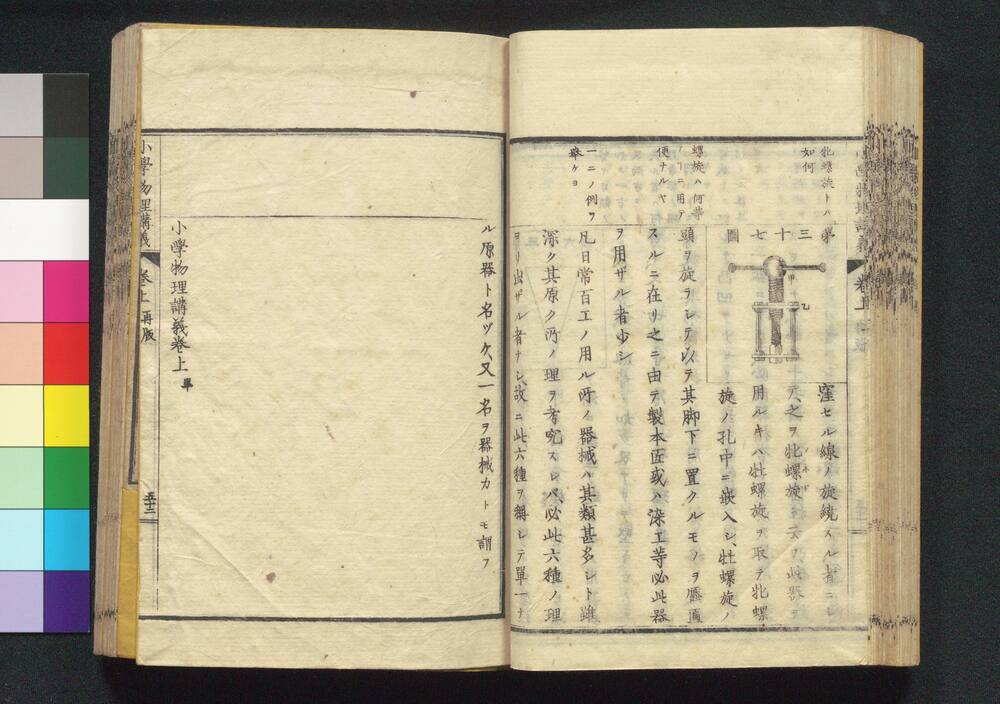 牝螺旋トハ
如何
螺旋ハ何等
ノ

用テ
便ナルヤ
一二ノ例ヲ
擧ケヨ
第三十七圖
甲
乙
窪セル線ノ旋繞スル者ニシ
テ、之ヲ牝螺旋ト云フ、此器ヲ
用ルキハ牡螺旋ヲ取テ牝螺
旋ノ孔中ニ嵌入シ、牡螺旋ノ
頭ヲ旋ラシテ以テ其脚下ニ置クルモノヲ壓
スルニ在リ之ニ由テ製本匠或ハ染工等必此器
ヲ用ザル者少シ
凡日常百工ノ用ル所ノ器械ハ其類甚多シト雖
深ク其原ク所ノ理ヲ考究スレバ必此六種ノ理
ヨリ出ザル者ナシ、故ニ此六種ヲ稱シテ單一ナ
ル原器ト名ヅケ、又一名ヲ器械力トモ謂フ
小學物理講義卷上 畢
小學物理講義
卷上 再版
五十二